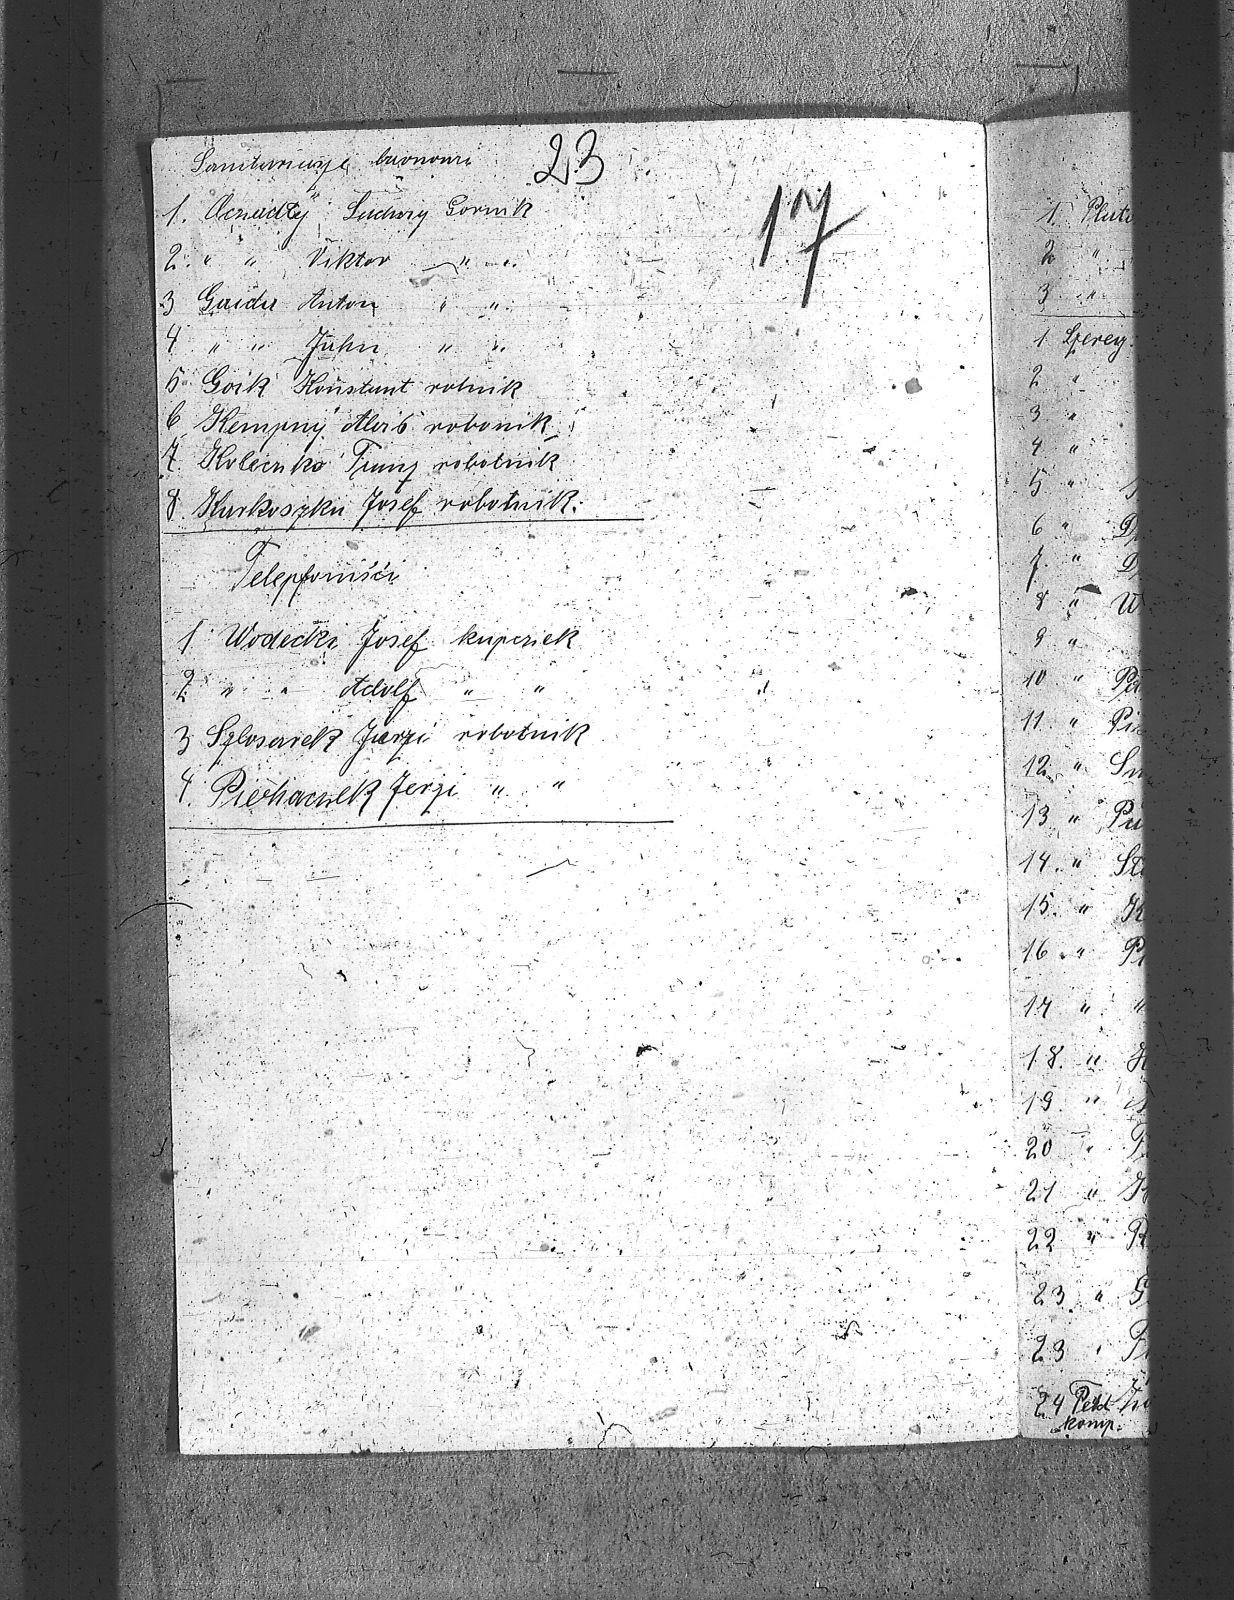 23
17
1. Ludwig Gornik
2. " " Viktor " "
3 Gaida Anton " "
4 " " Juhn " "
5 Goik Konstant rolnik
6 Kempny Alois robonik
7. Franz robotnik
8. Karkoszka Josef robotnik.
Telepfoniści
1 Wodecki Josef kupcziek
2 " " Adolf " "
3 Szlosarek Jerzi robotnik
4. Piechaczek Jerzi " "
1. Pluto
2 "
3 "
1 Szereg
2 "
3 "
4 "
5 "
6 "
7. "
8 "
9 "
10 "
11 "
12. "
13 "
14. "
15. "
16 "
17 " "
18. "
19. "
20 "
21 "
22 "
23. "
23 "
24
komp.